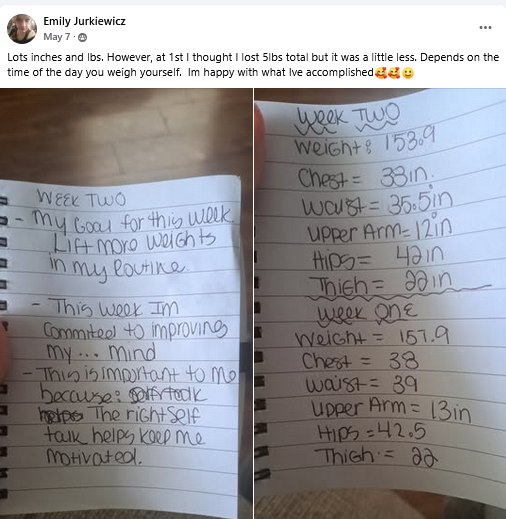 Emily Jurkiewicz
May 7 ·
Lots inches and lbs. However, at 1st I thought I lost 5lbs total but it was a little less. Depends on the
time of the day you weigh yourself. Im happy with what Ive accomplished🥰🥰🙂
WEEK TWO
- My Goal for this week
Lift more weights
in my routine
- This week Im
Commited to improving
my ... mind
- This is important to me
because: Self talk
helps The right self
talk helps keep me
motivated.
Week TWO
Weight: 153.9
Chest = 38in.
Waist = 35.5in
Upper Arm = 12in
Hips = 42in
Thigh = 22in
Week ONE
Weight = 157.9
Chest = 38
Waist = 39
Upper Arm = 13in
Hips = 42.5
Thigh = 22